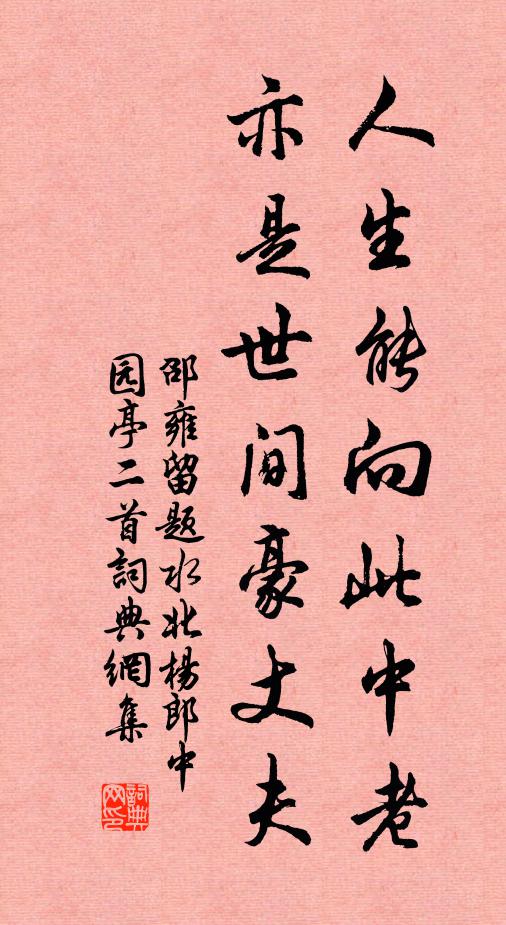 人生能向此中老
亦是世间豪丈夫
邵雍留题水北杨郎中
园亭二首詞典網集
詞典
网印